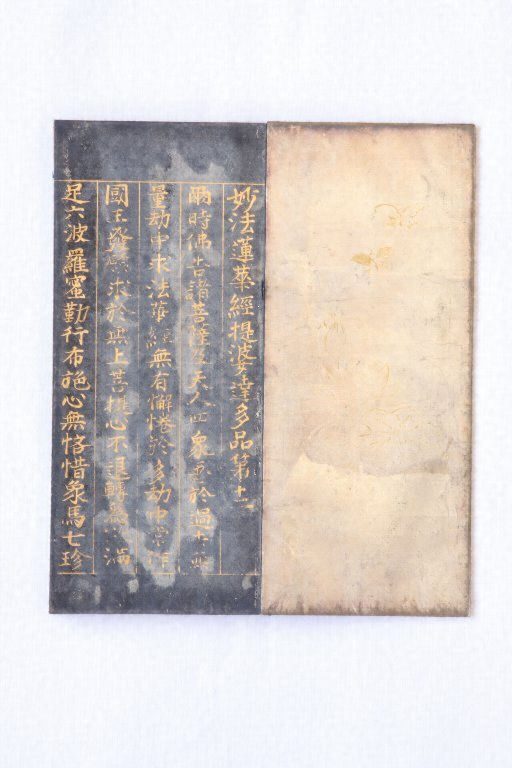 妙法蓮華經提婆達多品第十二
爾時佛告諸菩薩及天人四衆吾於過去無
量劫中求法華經無有懈惓於多劫中常作
國王發願求於無上菩提心不退轉為 滿
足六波羅蜜勤行布施心無悋惜象馬七珍